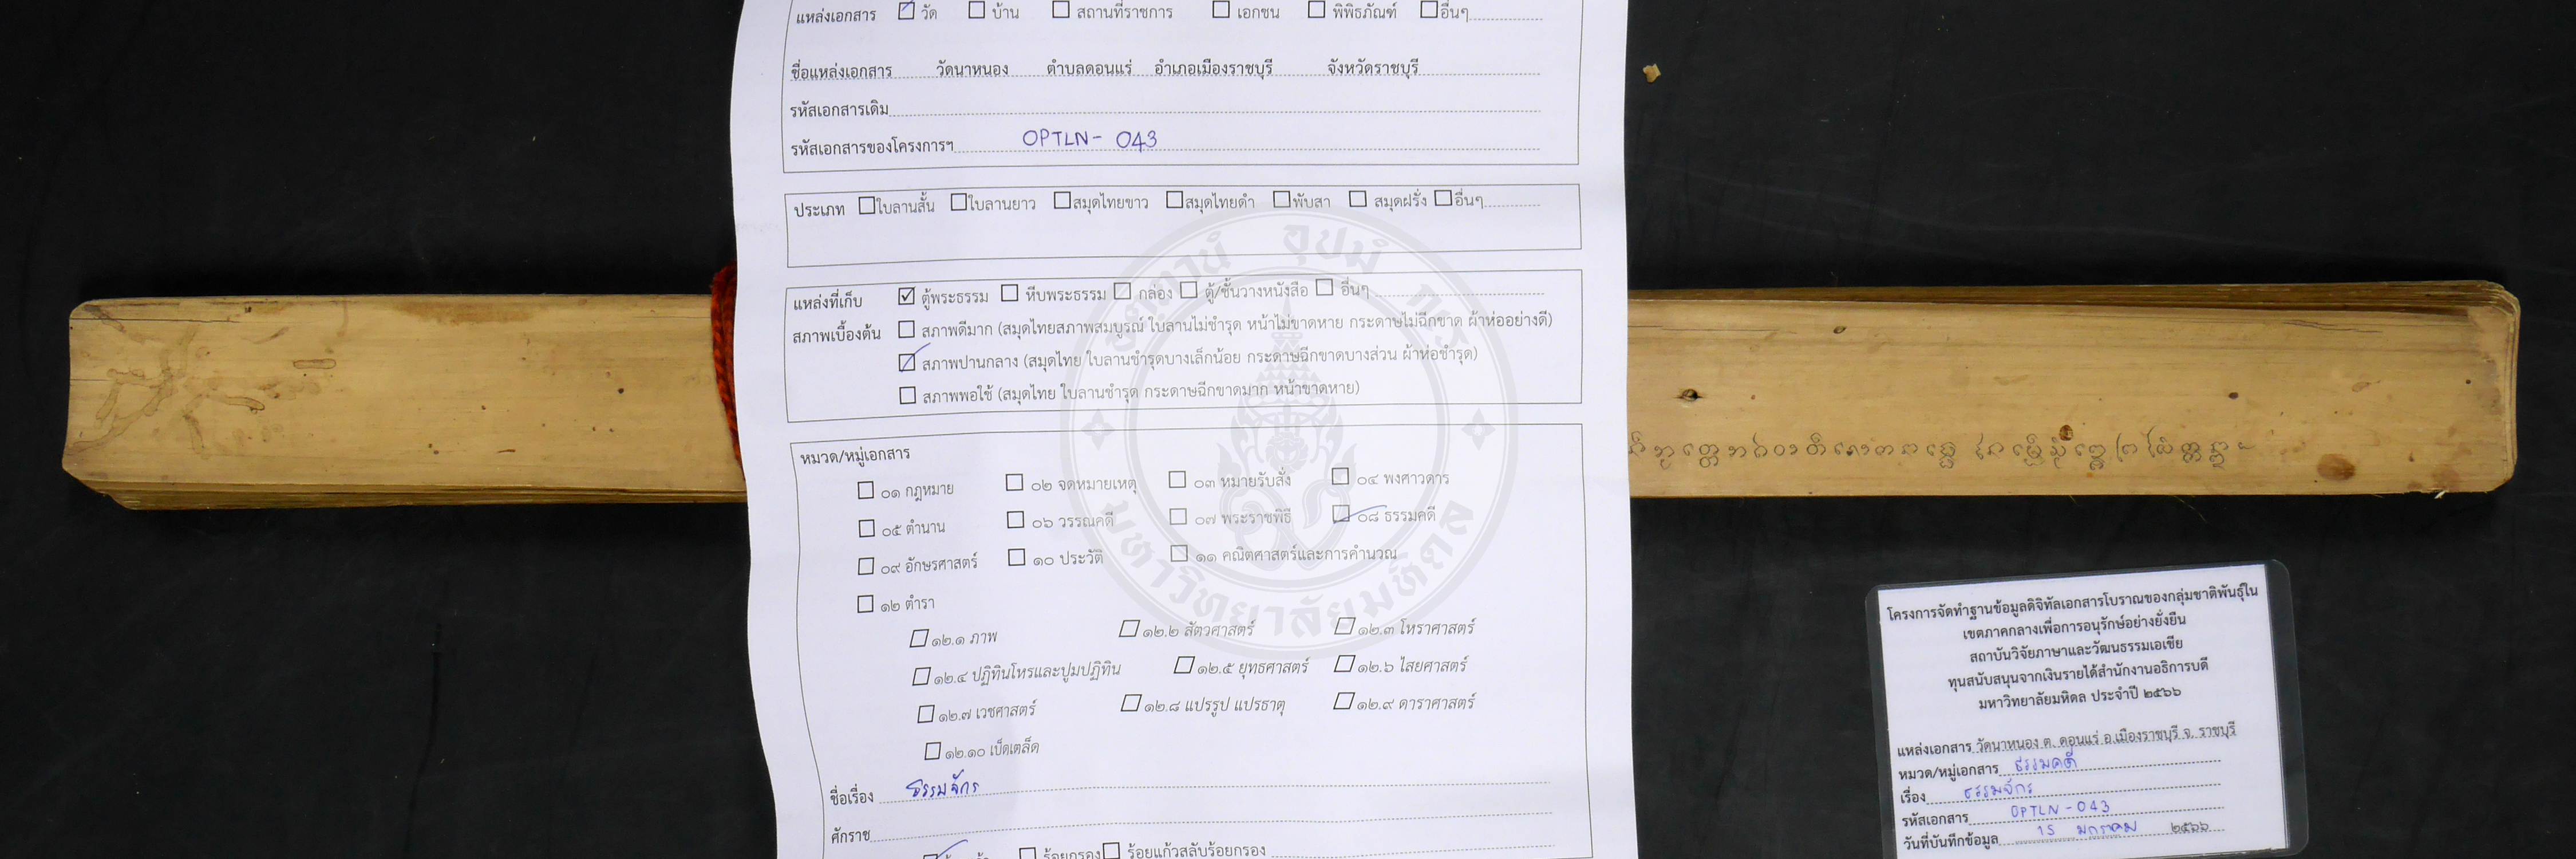 แหล่งเอกสาร วัด บ้าน สถานที่ราชการ เอกชน พิพิธภัณฑ์ อื่นๆ
ชื่อแหล่งเอกสาร วัดนาหนอง ตำบลดอนแร่ อำเภอเมืองราชบุรี จังหวัดราชบุรี
รหัสเอกสารเดิม
รหัสเอกสารของโครงการฯ OPTLN- 043
ประเภท ใบลานสั้น ใบลานยาว สมุดไทยขาว สมุดไทยดำ พับสา สมุดฝรั่ง อื่นๆ
แหล่งที่เก็บ ตู้พระธรรม หีบพระธรรม กล่อง ตู้/ชั้นวางหนังสือ อื่นๆ
สภาพเบื้องต้น สภาพดีมาก (สมุดไทยสภาพสมบูรณ์ ใบลานไม่ชำรุด หน้าไม่ขาดหาย กระดาษไม่ฉีกขาด ผ้าห่ออย่างดี)
สภาพปานกลาง (สมุดไทย ใบลานชำรุดบางเล็กน้อย กระดาษฉีกขาดบางส่วน ผ้าห่อชำรุด)
สภาพพอใช้ (สมุดไทย ใบลานชำรุด กระดาษฉีกขาดมาก หน้าขาดหาย)
หมวด/หมู่เอกสาร
๐๑ กฎหมาย ๐๒ จดหมายเหตุ ๐๓ หมายรับสั่ง ๐๔ พงศาวดาร
๐๕ ตำนาน ๐๖ วรรณคดี ๐๗ พระราชพิธี ๐๘ ธรรมคดี
๐๙ อักษรศาสตร์ ๑๐ ประวัติ ๑๑ คณิตศาสตร์และการคำนวณ
๑๒ ตำรา
๑๒.๑ ภาพ ๑๒.๒ สัตวศาสตร์ ๑๒.๓ โหราศาสตร์
๑๒.๔ ปฏิทินโหรและปูมปฏิทิน ๑๒.๕ ยุทธศาสตร์ ๑๒.๖ ไสยศาสตร์
๑๒.๗ เวชศาสตร์ ๑๒.๘ แปรรูป แปรธาตุ ๑๒.๙ ดาราศาสตร์
๑๒.๑๐ เบ็ดเตล็ด
ชื่อเรื่อง ธรรมจักร
ศักราช
ร้อยกรอง ร้อยแก้วสลับร้อยกรอง
มหาวิทยาลัยมหิดล
โครงการจัดทำฐานข้อมูลดิจิทัลเอกสารโบราณของกลุ่มชาติพันธุ์ใน
เขตภาคกลางเพื่อการอนุรักษ์อย่างยั่งยืน
สถาบันวิจัยภาษาและวัฒนธรรมเอเชีย
ทุนสนับสนุนจากเงินรายได้สำนักงานอธิการบดี
มหาวิทยาลัยมหิดล ประจำปี ๒๕๖๖
แหล่งเอกสาร วัดนาหนอง ต. ดอนแร่ อ.เมืองราชบุรี จ. ราชบุรี
หมวด/หมู่เอกสาร ธรรมคดี
เรื่อง ธรรมจักร
รหัสเอกสาร OPTLN - 043
วันที่บันทึกข้อมูล 15 มกราคม ๒๕๖๖